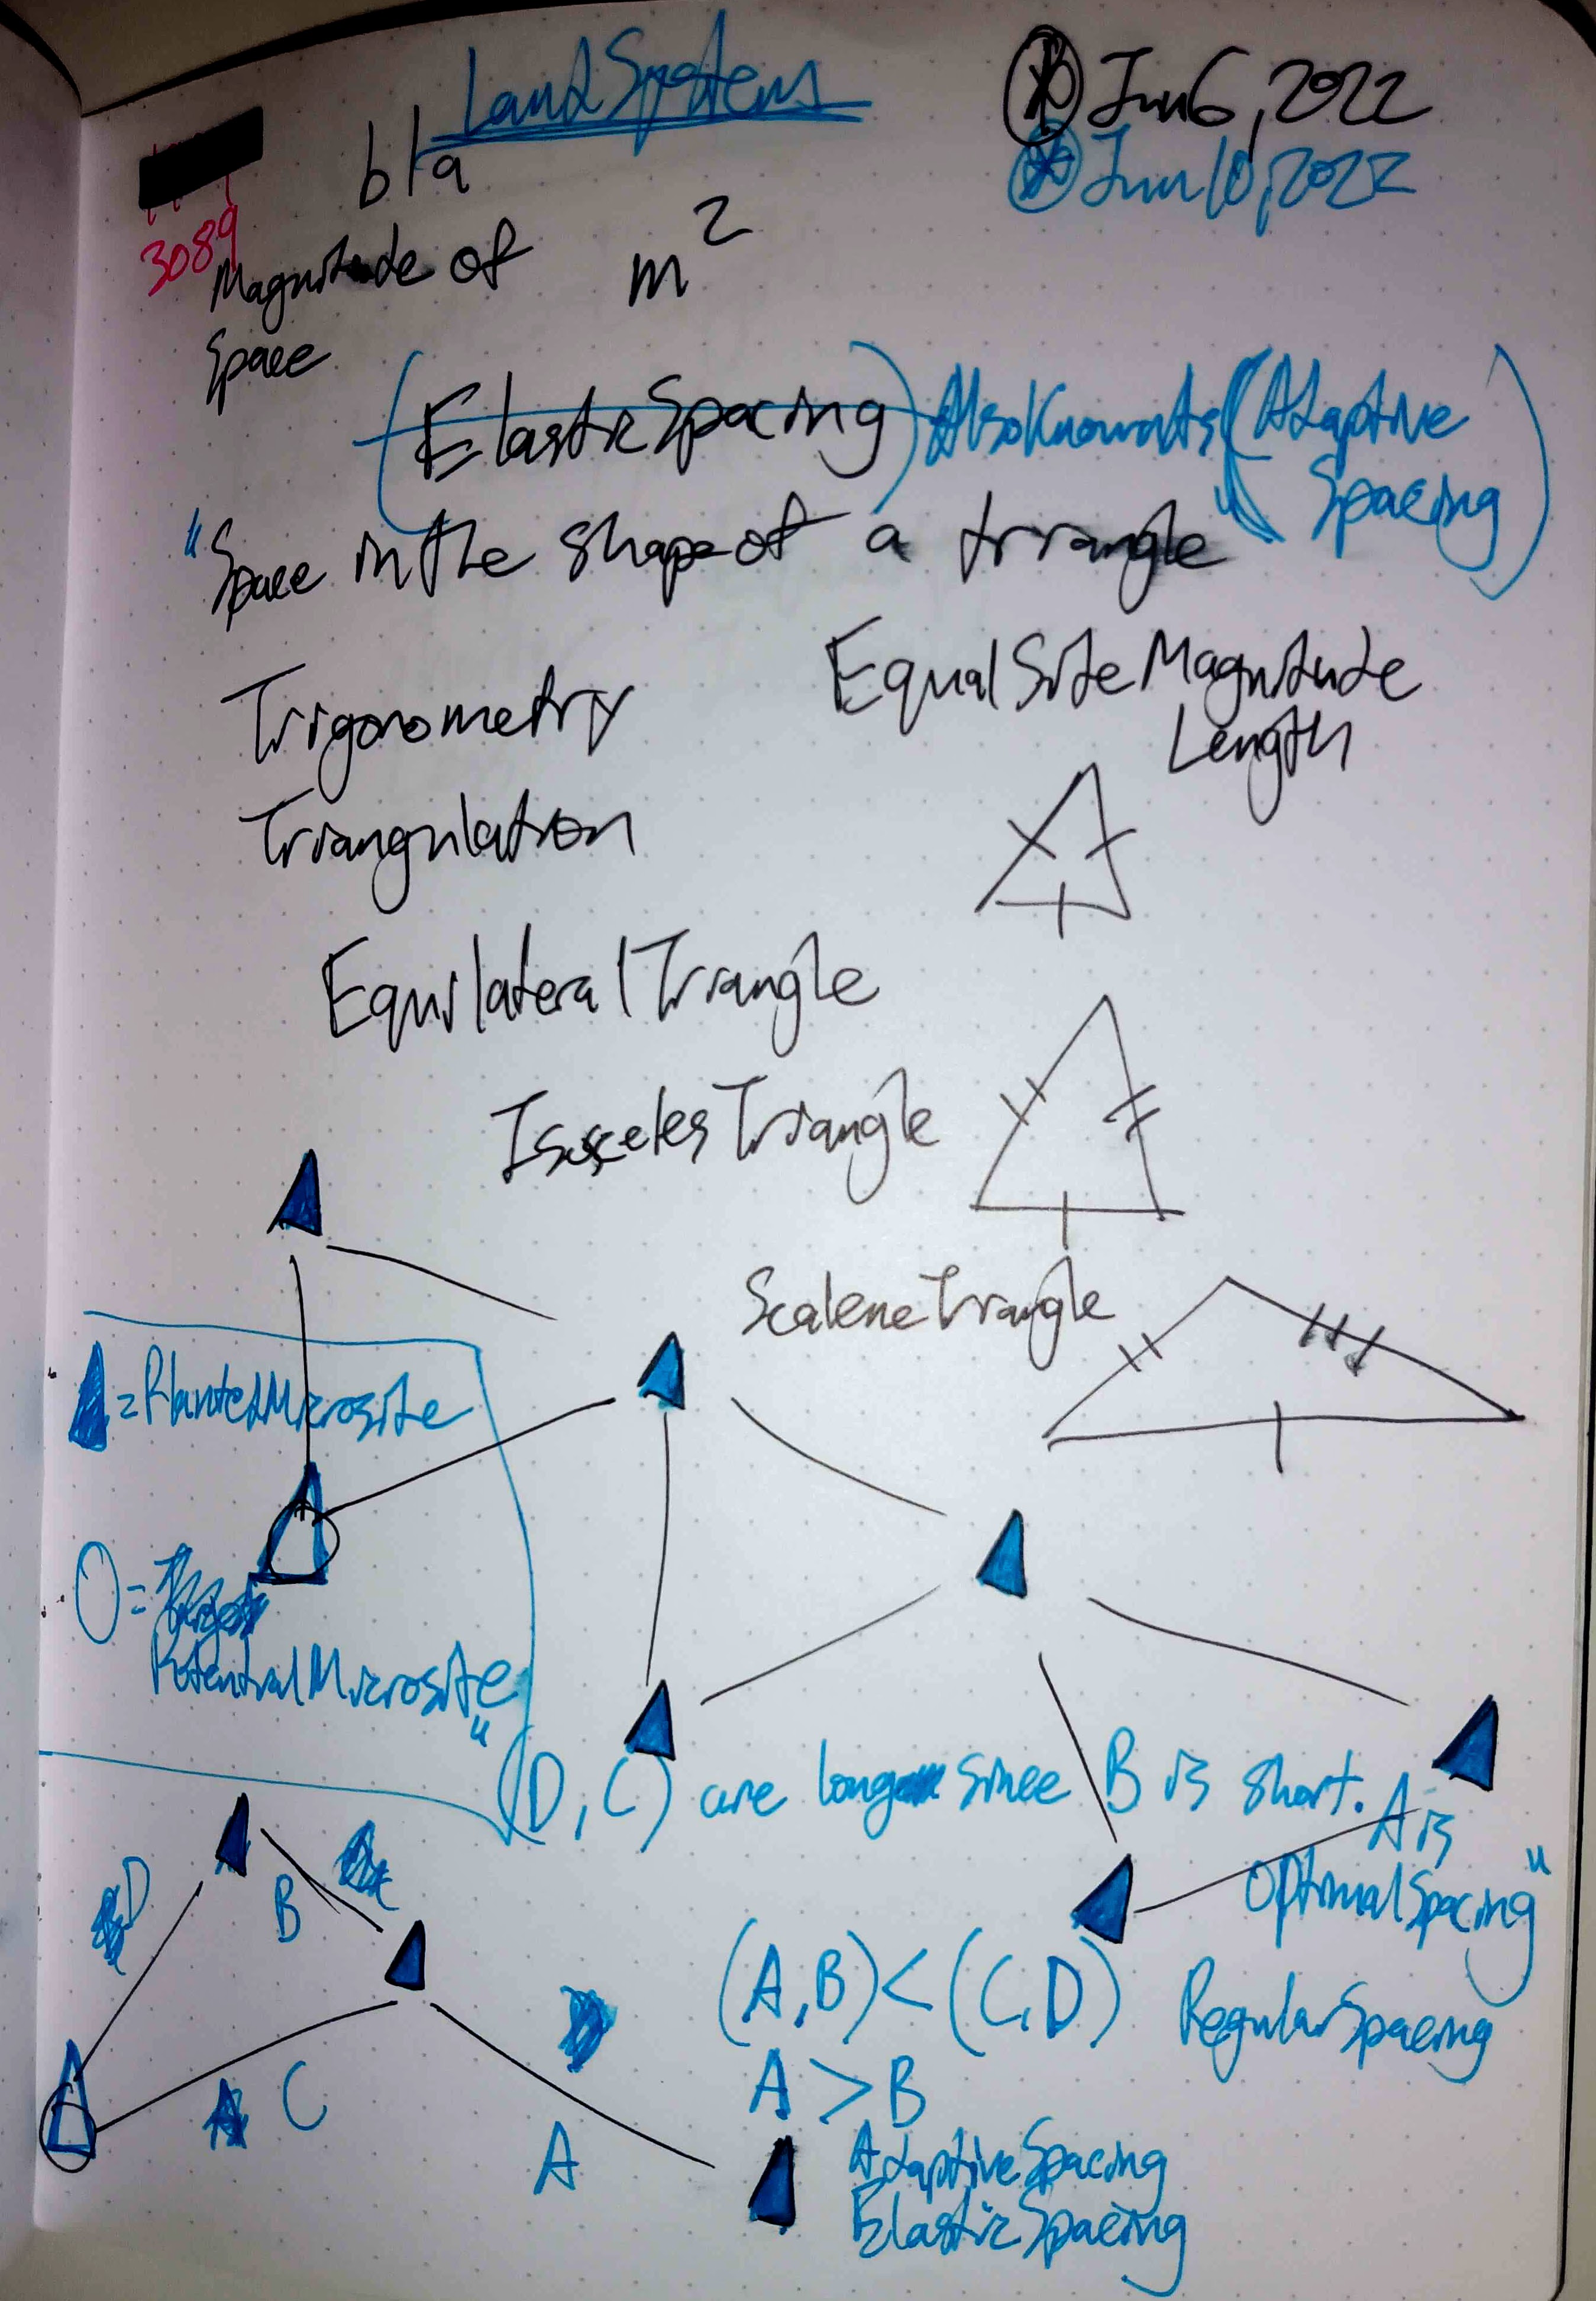 LandSystems
Jun 6, 2022
Jun 10, 2022
bla
3089
Magnitude of
Space
m²
(ElasticSpacing) AlsoKnownAs (Adaptive
Spacing)
"Space in the shape of a triangle"
Trigonometry
EqualSiteMagnitude
Length
Triangulation
EquilateralTriangle
IsoscelesTriangle
ScaleneTriangle
=PlantedMicrosite
O=
PotentialMicrosite
"(D, C) are long since B is short. A is
OptimalSpacing"
D
B
(A, B) < (C, D)
RegularSpacing
A > B
C
A
AdaptiveSpacing
ElasticSpacing